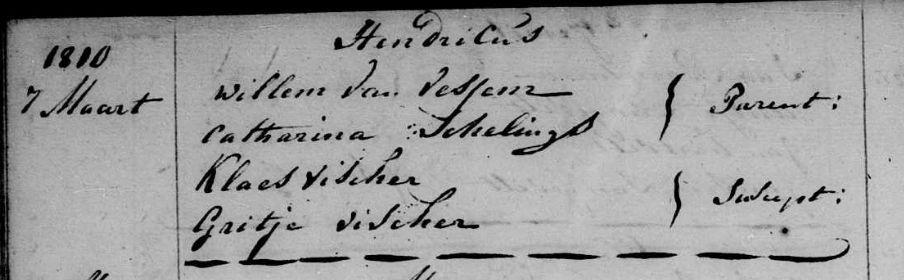 Hendricus
1810
7 Maart
willem van Vessem } Parent:
Catharina Schelings
Klaes visscher } Suscept:
Gritje visscher